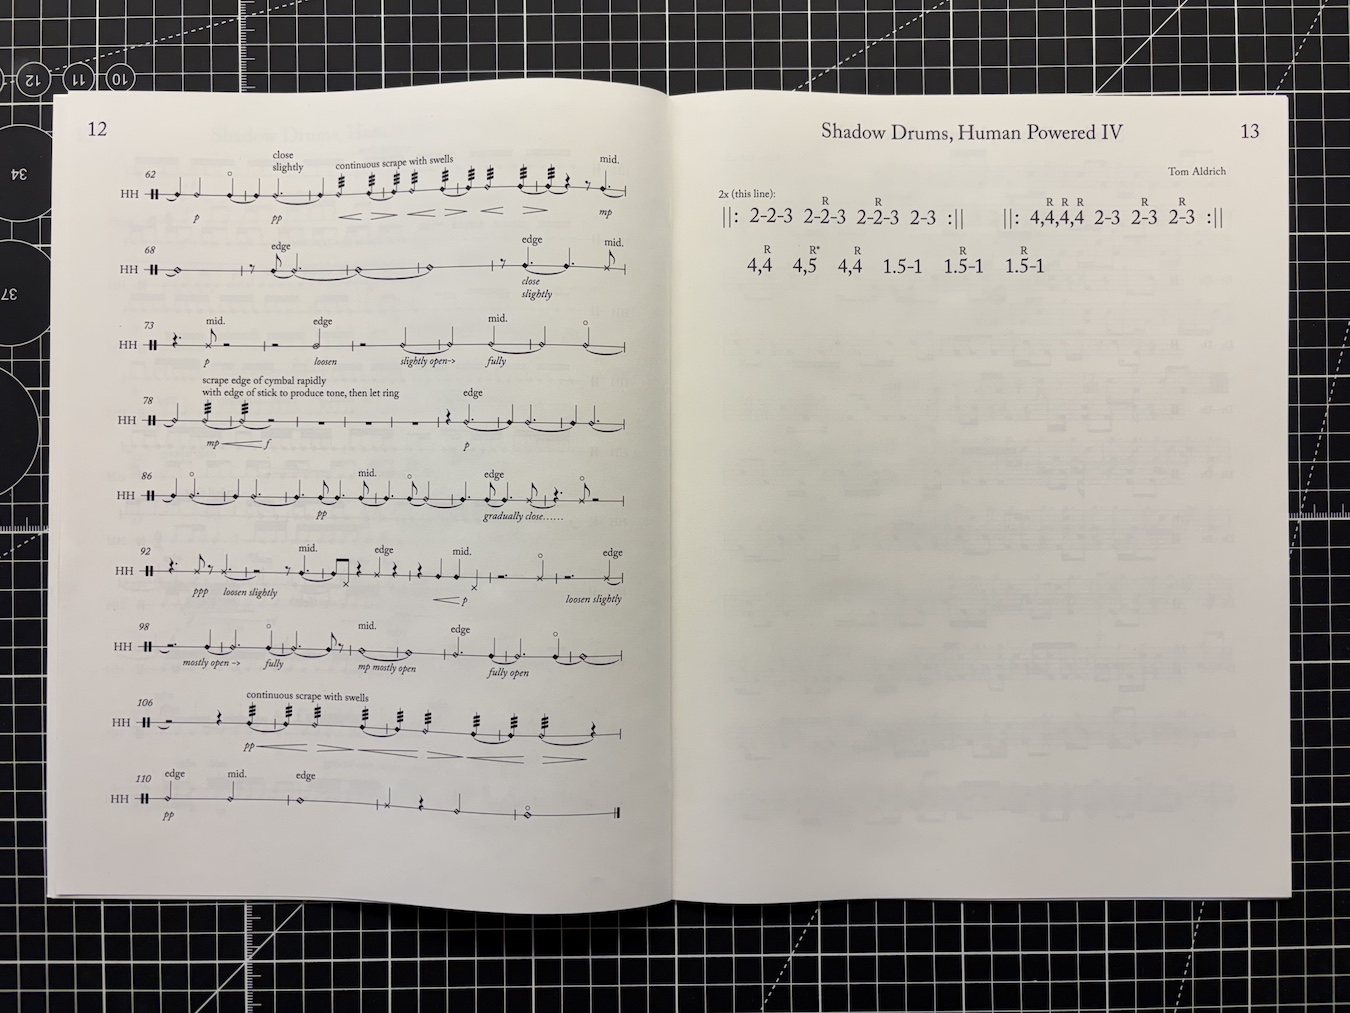 12 11 10
34
37
12
close
slightly
continuous scrape with swells
mid.
62
HH
p pp mp
68
edge edge mid.
HH
close
slightly
73
mid. edge mid.
HH
p loosen slightly open-> fully
scrape edge of cymbal rapidly
with edge of stick to produce tone, then let ring
edge
78
HH
mp f p
86
mid. edge
HH
pp gradually close......
92
mid. edge mid. edge
HH
ppp loosen slightly p loosen slightly
98
mid. edge
HH
mostly open -> fully mp mostly open fully open
continuous scrape with swells
106
HH
pp
110
edge mid. edge
HH
pp
Shadow Drums, Human Powered IV
13
Tom Aldrich
2x (this line):
R R R R R R R
||: 2-2-3 2-2-3 2-2-3 2-3 :|| ||: 4,4,4,4 2-3 2-3 2-3 :||
R R* R R R
4,4 4,5 4,4 1.5-1 1.5-1 1.5-1